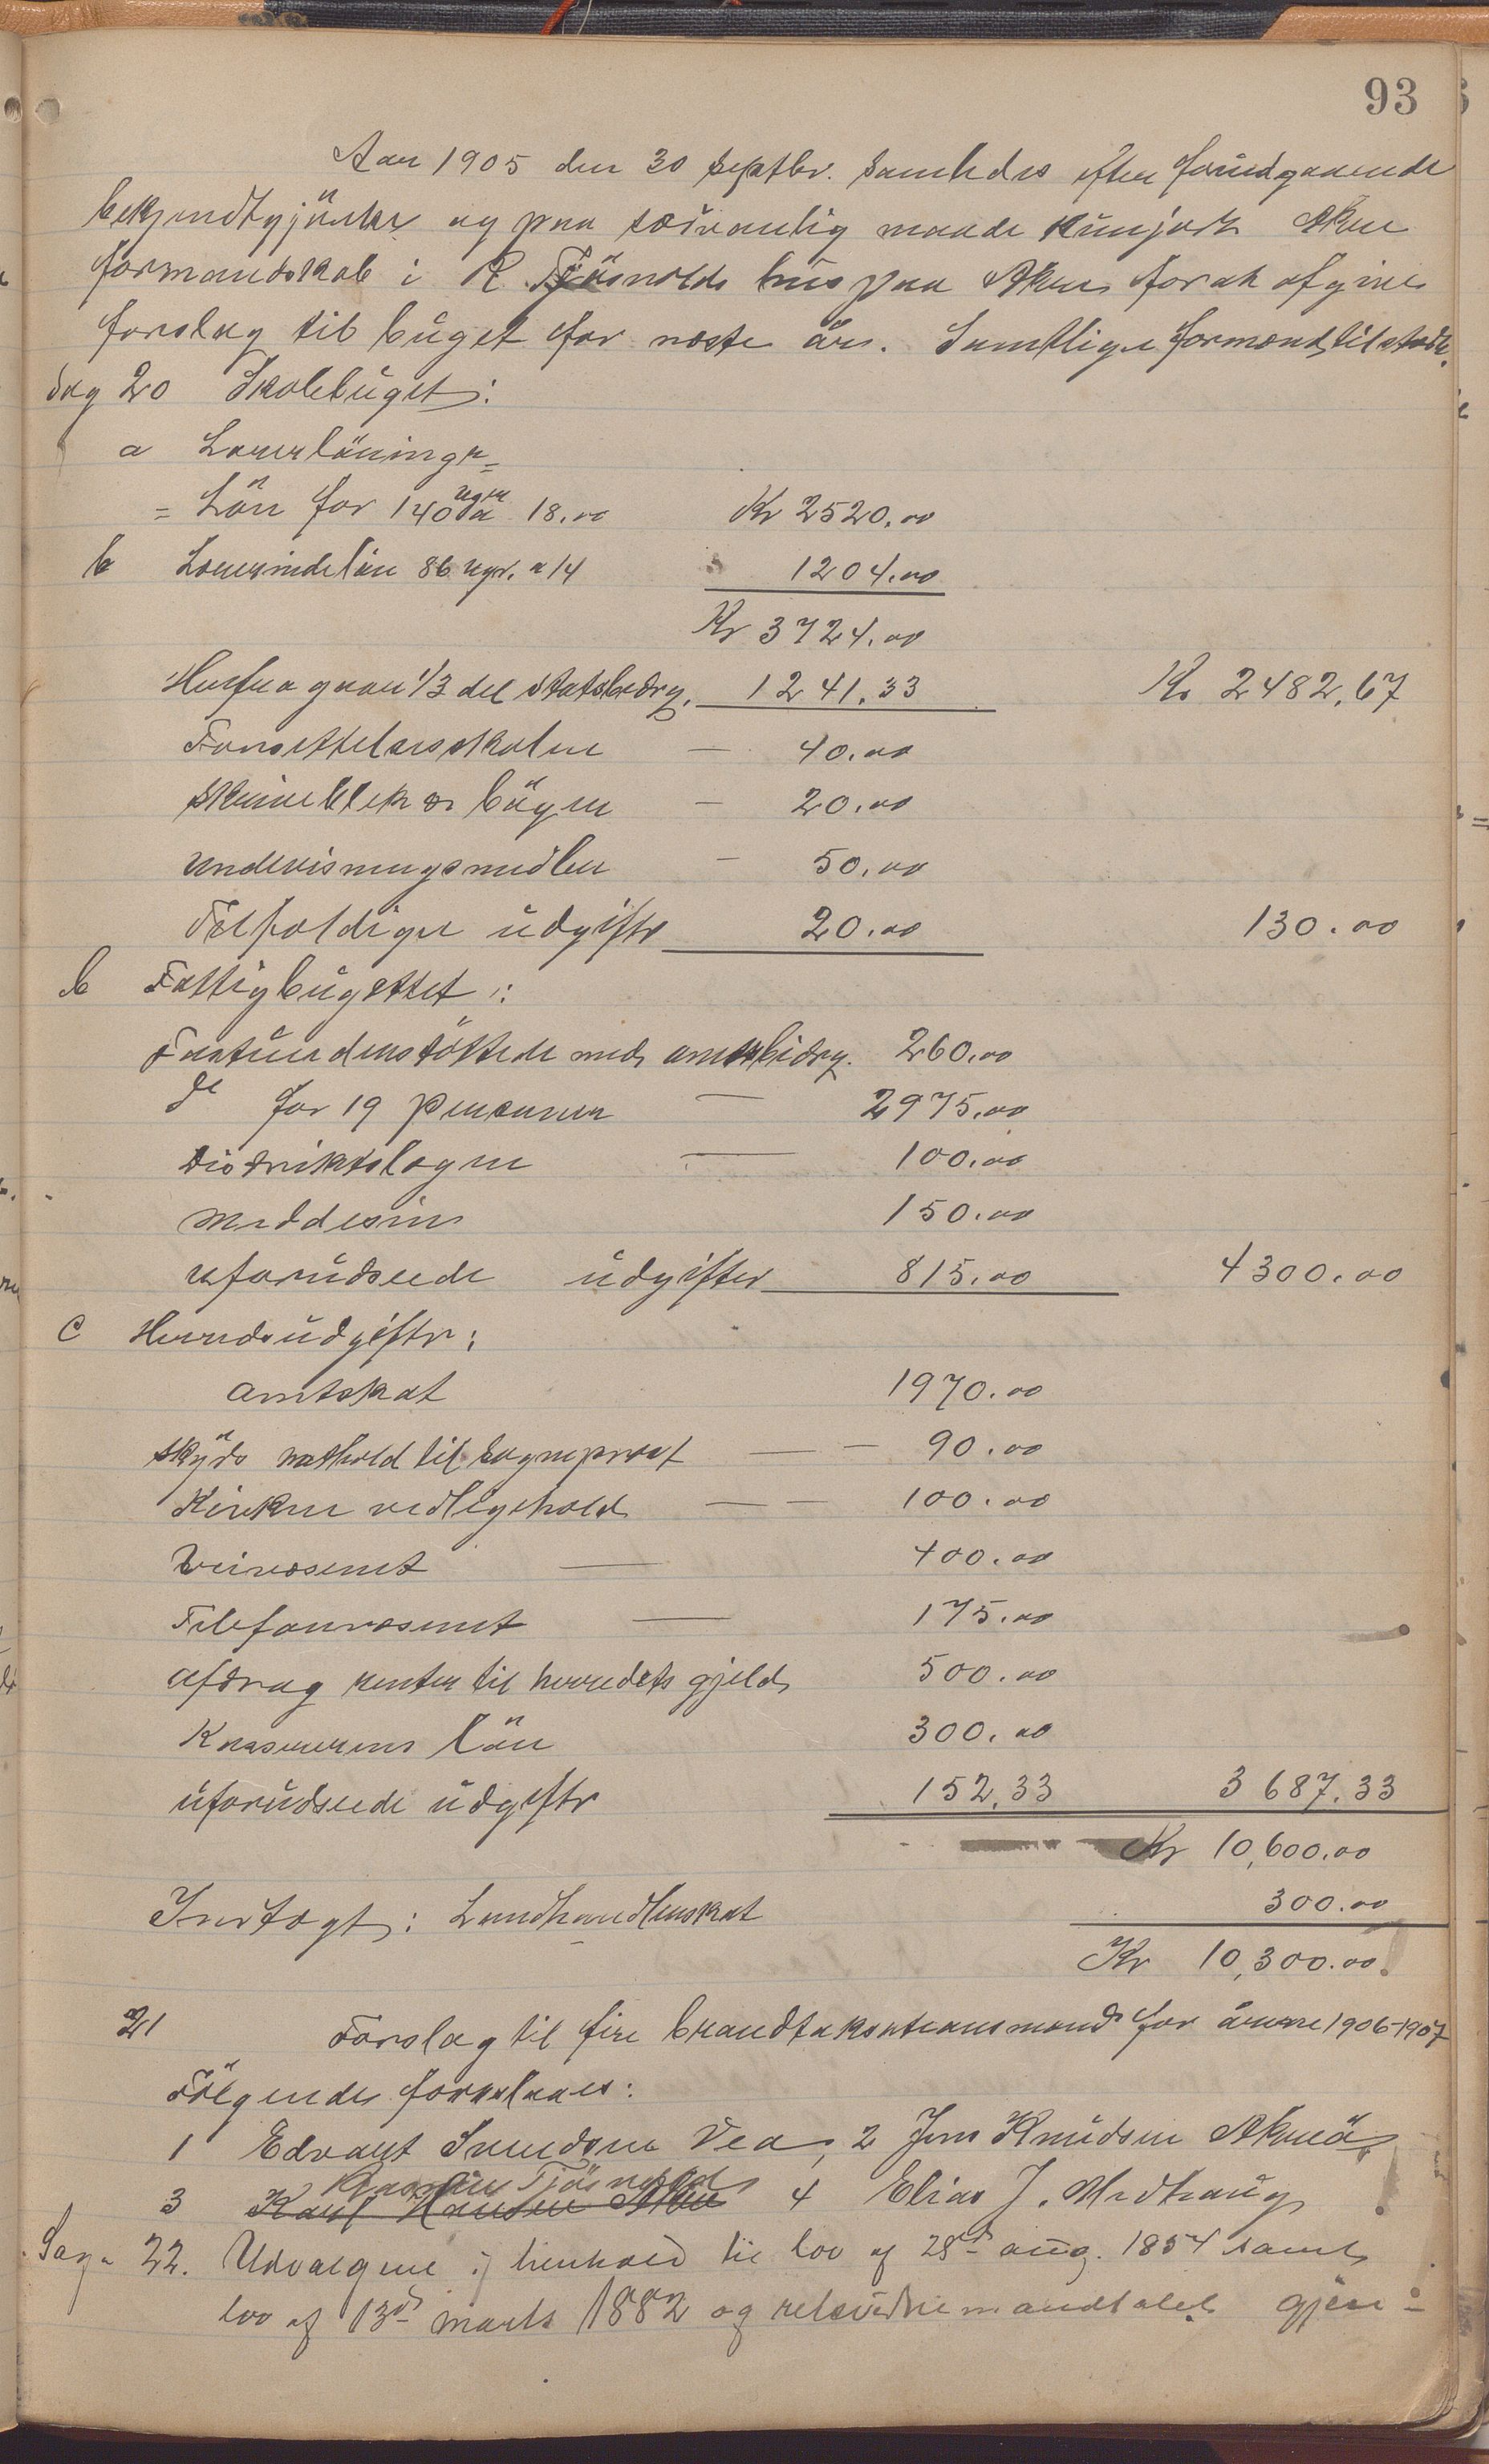 93
Aar 1905 den 30 septbr. samledes efter forudgaaende
bekjendtgjörelse og paa sædvanlig maade kungjort Akre
formandskab i R. Tjösvolds hus paa Akre for at afgive
forslag til buget for næste år. Samtlige formænd tilstede.
Sag 20 Skolebuget:
a Lærerlöninger
= Lön for 140 uger a 18.00 Kr 2520.00
b Lærerindelön 86 uger. a 14 1204.00
Kr 3724.00
Herfra gaar 1/3 del statsbidrag. 1241.33 Kr 2482,67
Forsettelsesskolen — 40.00
Skrivebleke & böger — 20.00
undervisningsmidler — 50.00
Tilfældige udgifter 20.00 130.00
b Fattigbugettet:
Fastunderstöttede med amtsbidrag. 260.00
do for 19 personer — 2975.00
Distriktslægen — 100.00
Meddesin 150.00
uforudseede udgifter 815.00 4300.00
c Herredsudgifter:
Amtskat 1970.00
Skyds nathold til sogneprest — — 90.00
Kirken vedligehold — — 100.00
Veivæsenet — 400.00
Telefonvæsenet — 175.00
Afdrag renter til herredets gjeld 500.00
Kassererens lön 300.00
uforudseede udgifter 152.33 3687.33
Kr 10,600.00
Indtægt: Landhandlerskat 300.00
Kr 10,300.00
21 Forslag til fire brandtakstmænd for årene 1906-1907
Fölgende forslaaes:
1 Edvart Svendsen Vea, 2 Jens Knudsen Akreö
Rasmus Tjösvold
3 Karl Hansen Akre 4 Elias J. Medhaug
Sag 22. Udvalgene i henhold til lov af 28de aug. 1854 samt
lov af 13de marts 1882 og mandtallet gjen-